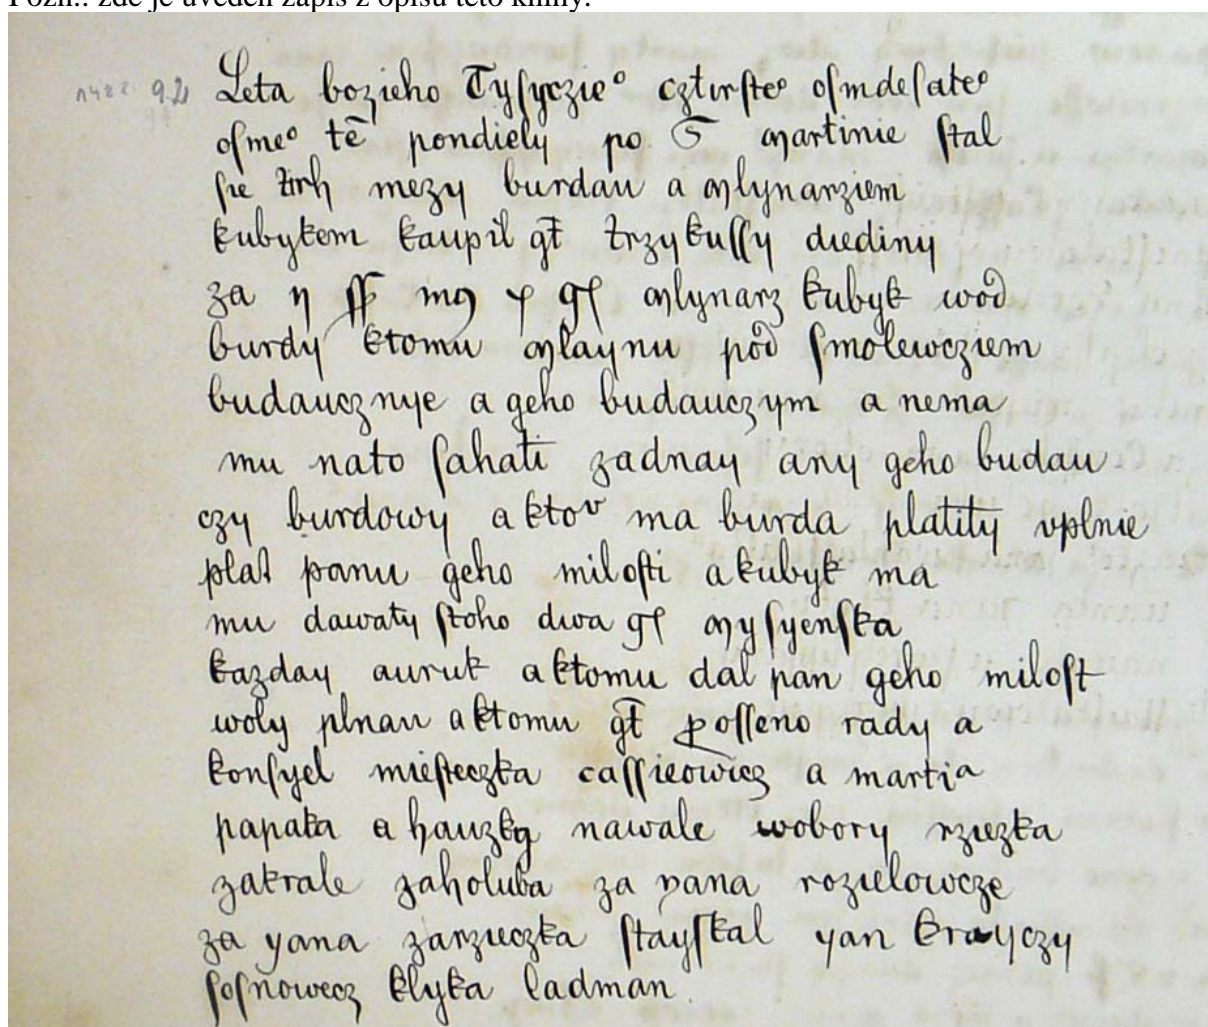 Pozn.: zde je uveden zápis z opisu této knihy:
1488 92
Leta bozieho Tysyczieº cztvrsteº osmdesateº
osmeº tē pondiely po S Martinie stal
sie trh mezy burdau a Mlynarziem
kubykem kaupil gt trzy kussy diediny
za ss mg gs Mlynarz kubyk wod
burdy ktomu Mlaynu pod smolewcziem
budaucznye a geho budauczym a nema
mu nato sahati zadnay any geho budau
czy burdowy a ktoᵛ ma burda platity vplnie
plat panu geho milosti a kubyk ma
mu dawaty stoho dwa gs Mysyenska
kazday auruk a ktomu dal pan geho milost
woly plnau a ktomu gt posseno rady a
konsyel miesteczka cassieowicz a martiᵃ
papata a hauzka nawale wobory rziezka
zakrale zaholuba za yana rozielowcze
za yana zarzieczka stayskal yan krayczy
sosnowecz klyka ladman